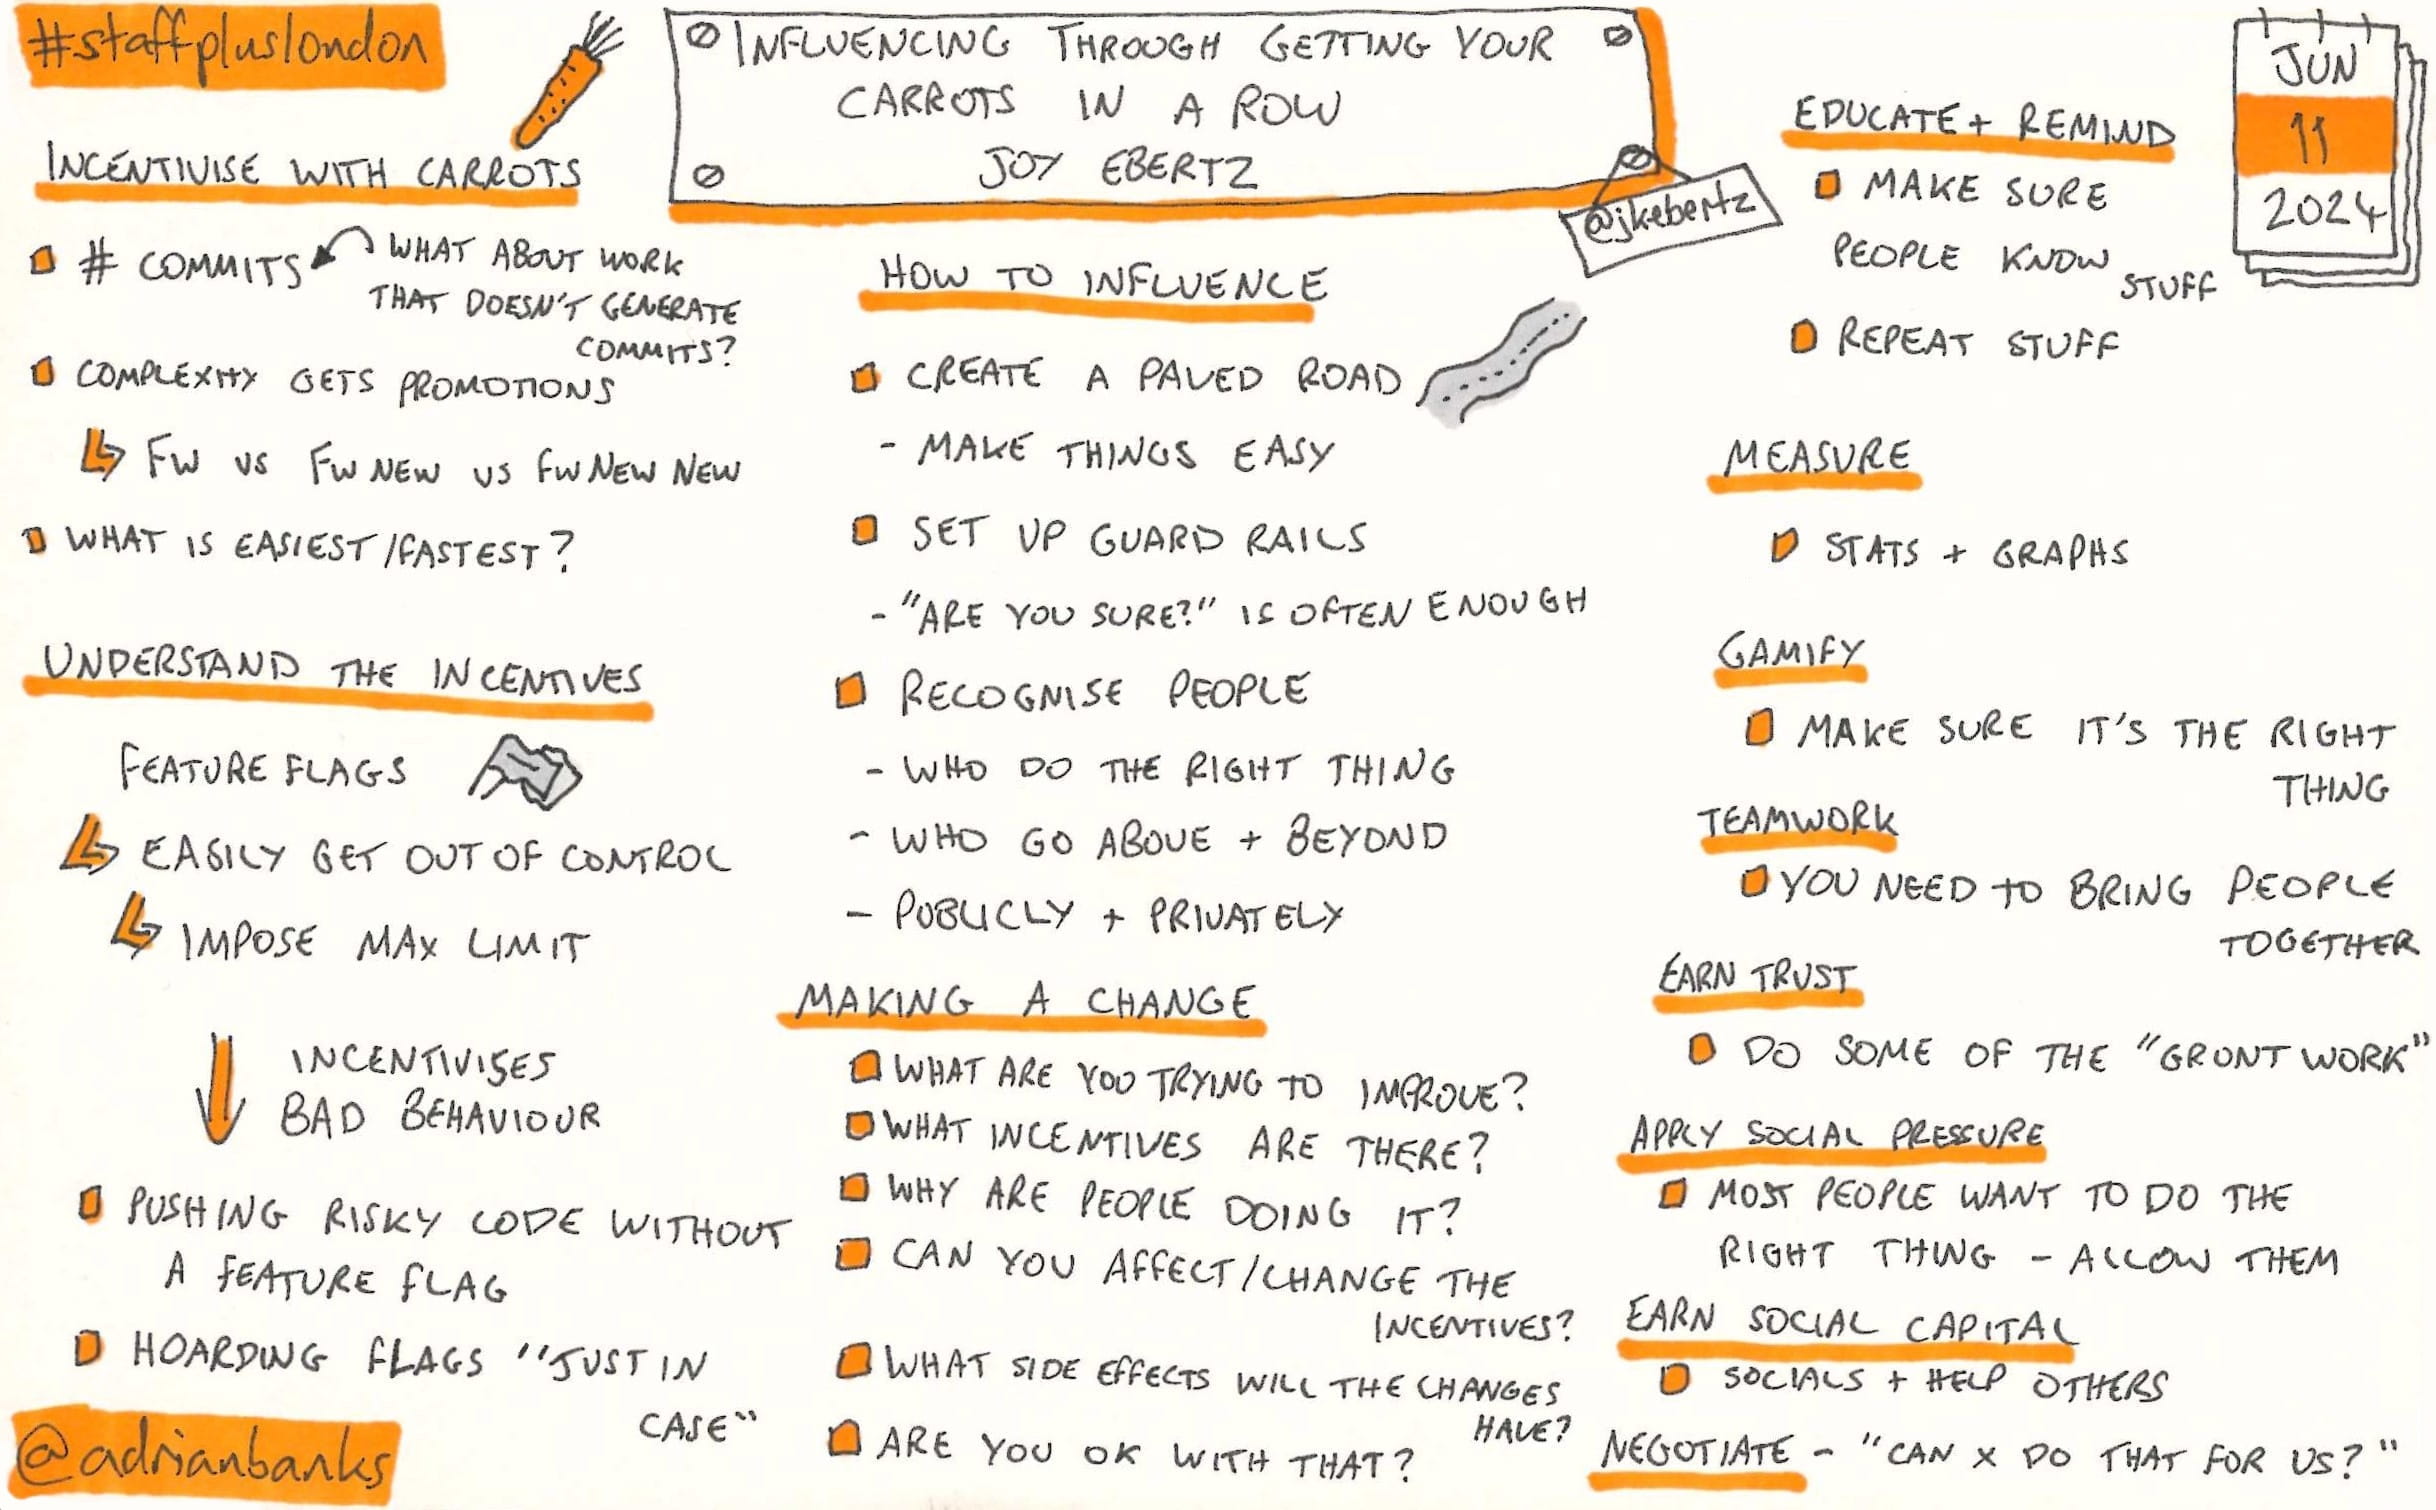 #staffpluslondon
INFLUENCING THROUGH GETTING YOUR
CARROTS IN A ROW
JOY EBERTZ
@jkebertz
JUN
11
2024
INCENTIVISE WITH CARROTS
# COMMITS
WHAT ABOUT WORK
THAT DOESN'T GENERATE
COMMITS?
COMPLEXITY GETS PROMOTIONS
FW VS FW NEW VS FW NEW NEW
WHAT IS EASIEST/FASTEST?
UNDERSTAND THE INCENTIVES
FEATURE FLAGS
EASILY GET OUT OF CONTROL
IMPOSE MAX LIMIT
INCENTIVISES
BAD BEHAVIOUR
PUSHING RISKY CODE WITHOUT
A FEATURE FLAG
HOARDING FLAGS "JUST IN
CASE"
@adrianbanks
HOW TO INFLUENCE
CREATE A PAVED ROAD
- MAKE THINGS EASY
SET UP GUARD RAILS
- "ARE YOU SURE?" IS OFTEN ENOUGH
RECOGNISE PEOPLE
- WHO DO THE RIGHT THING
- WHO GO ABOVE + BEYOND
- PUBLICLY + PRIVATELY
MAKING A CHANGE
WHAT ARE YOU TRYING TO IMPROVE?
WHAT INCENTIVES ARE THERE?
WHY ARE PEOPLE DOING IT?
CAN YOU AFFECT/CHANGE THE
INCENTIVES?
WHAT SIDE EFFECTS WILL THE CHANGES
HAVE?
ARE YOU OK WITH THAT?
EDUCATE + REMIND
MAKE SURE
PEOPLE KNOW
STUFF
REPEAT STUFF
MEASURE
STATS + GRAPHS
GAMIFY
MAKE SURE IT'S THE RIGHT
THING
TEAMWORK
YOU NEED TO BRING PEOPLE
TOGETHER
EARN TRUST
DO SOME OF THE "GRUNT WORK"
APPLY SOCIAL PRESSURE
MOST PEOPLE WANT TO DO THE
RIGHT THING - ALLOW THEM
EARN SOCIAL CAPITAL
SOCIALS + HELP OTHERS
NEGOTIATE - "CAN X DO THAT FOR US?"